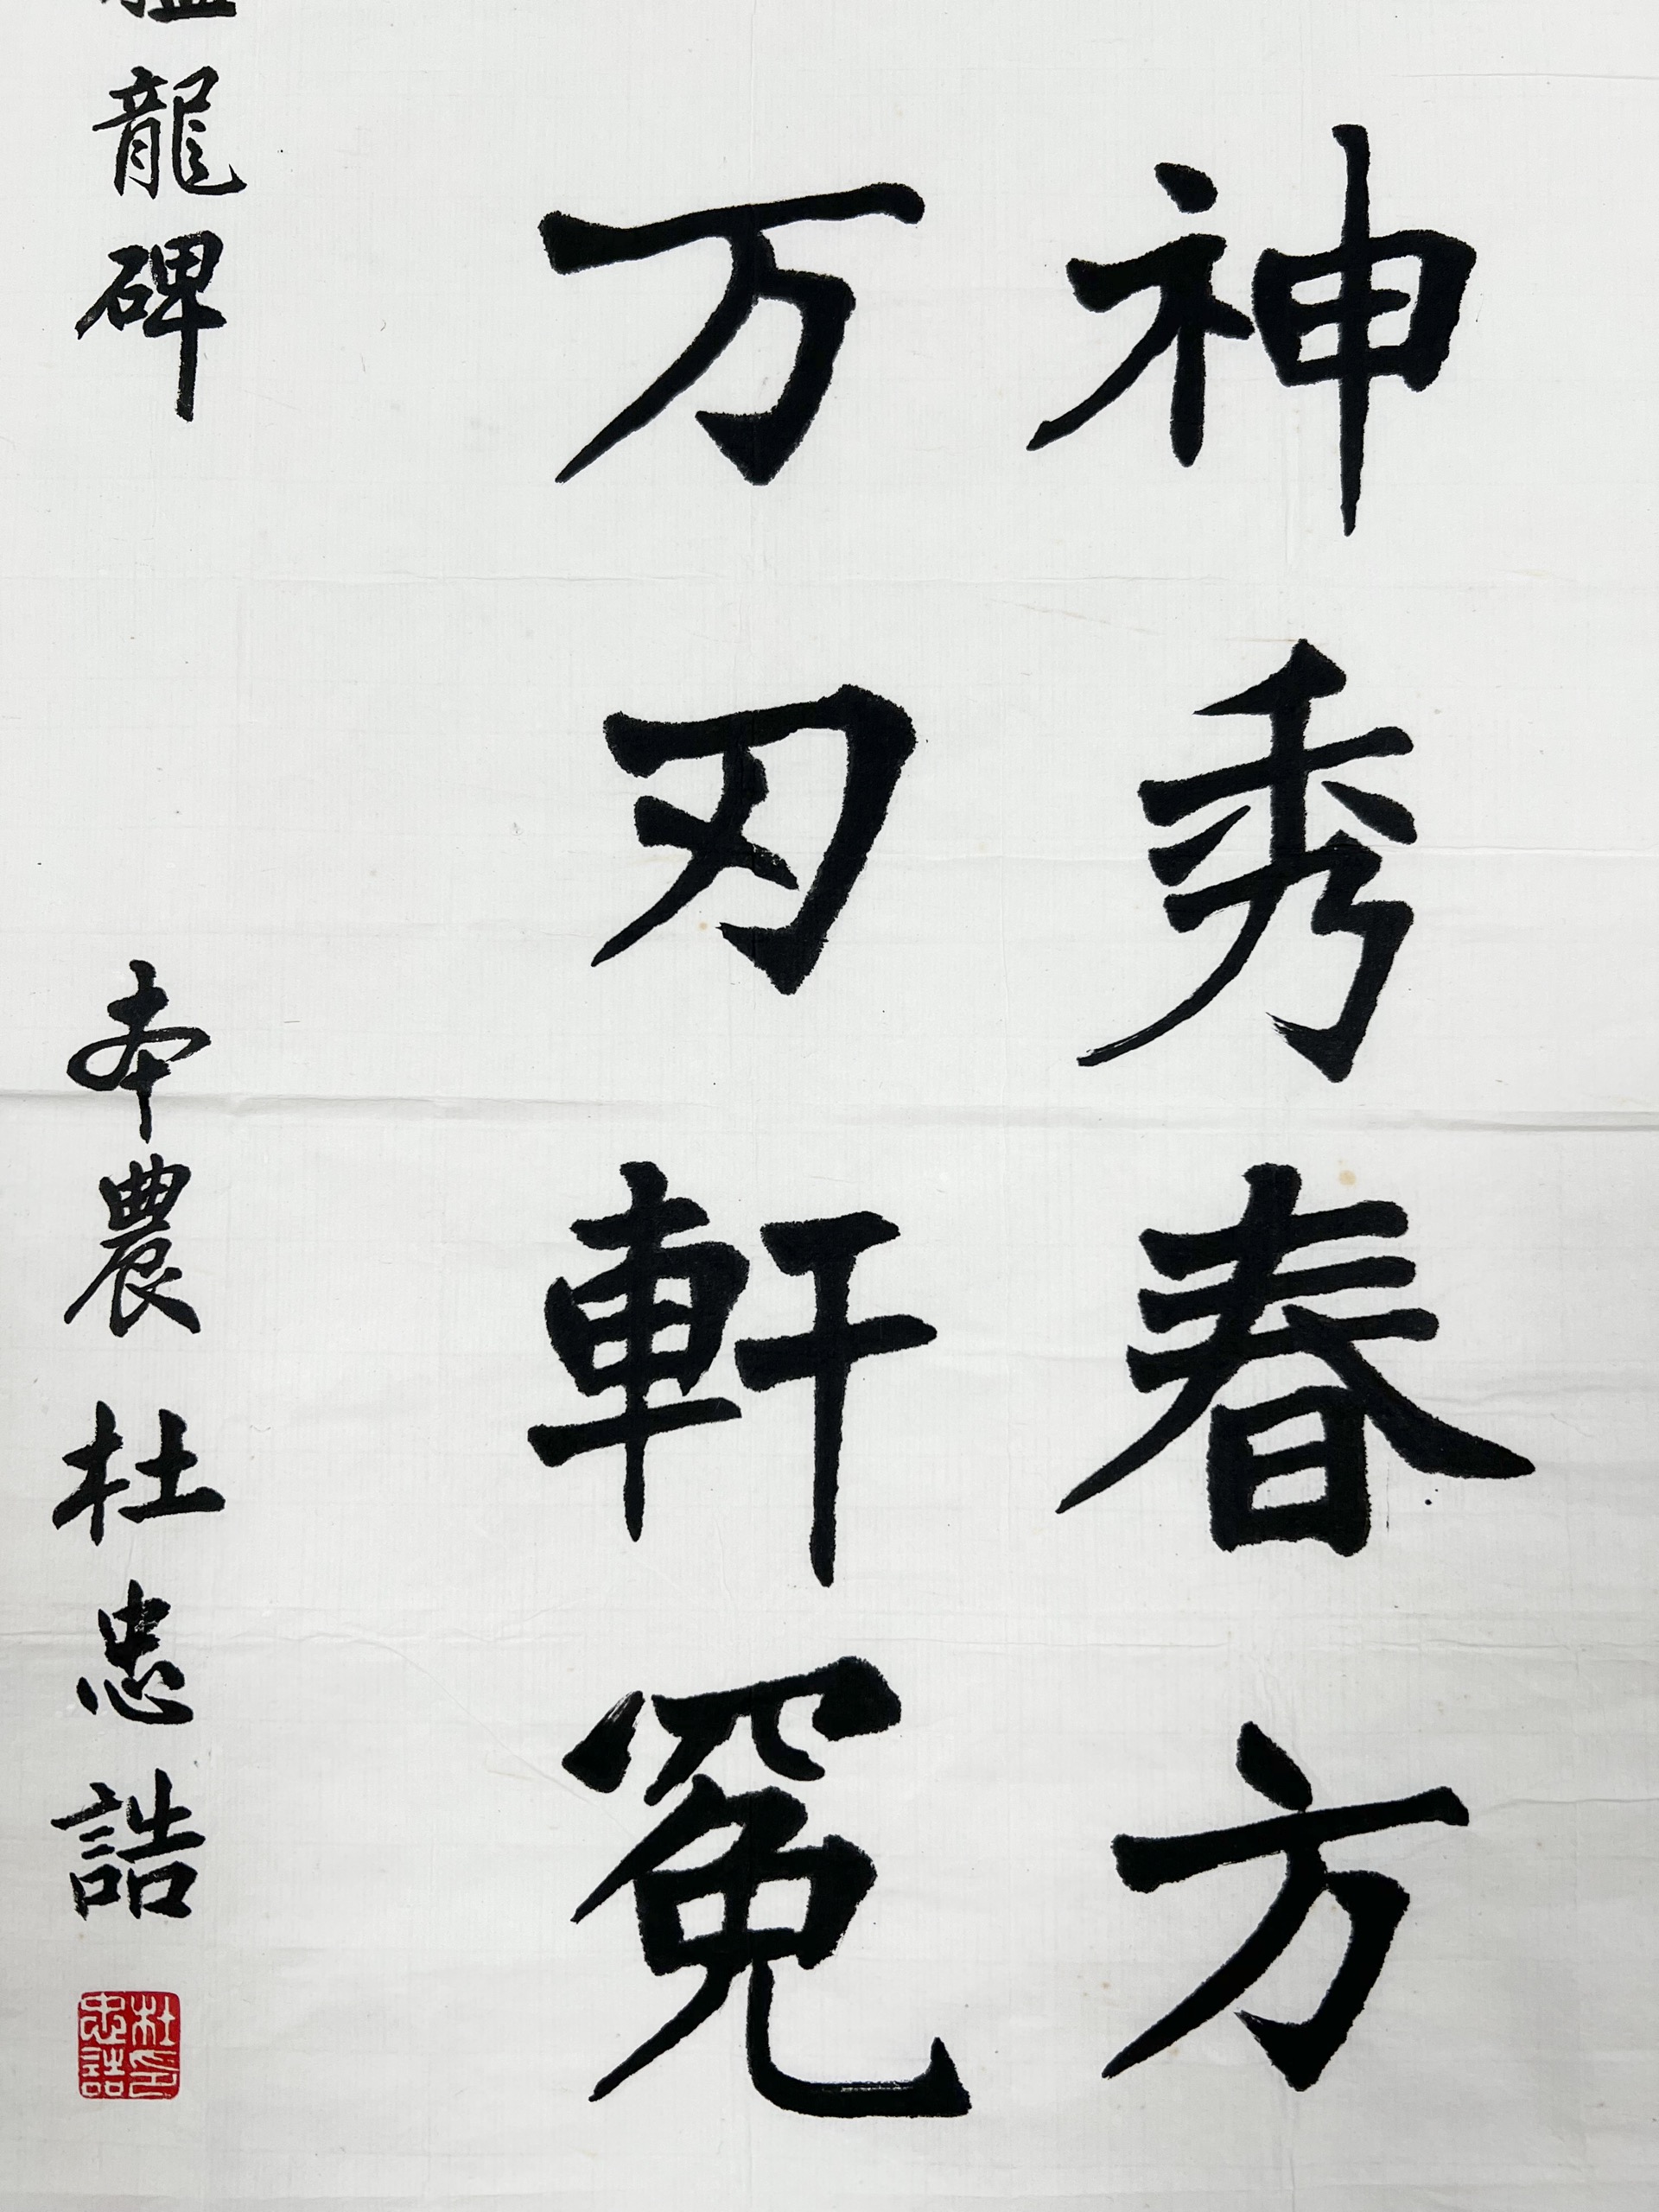 神秀春方
万刃軒冕
龍碑 本農 杜忠誥
杜印
忠誥